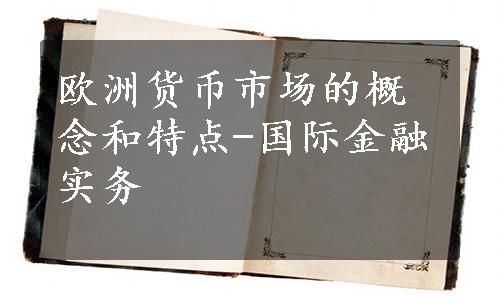 欧洲货币市场的概
念和特点-国际金融
实务